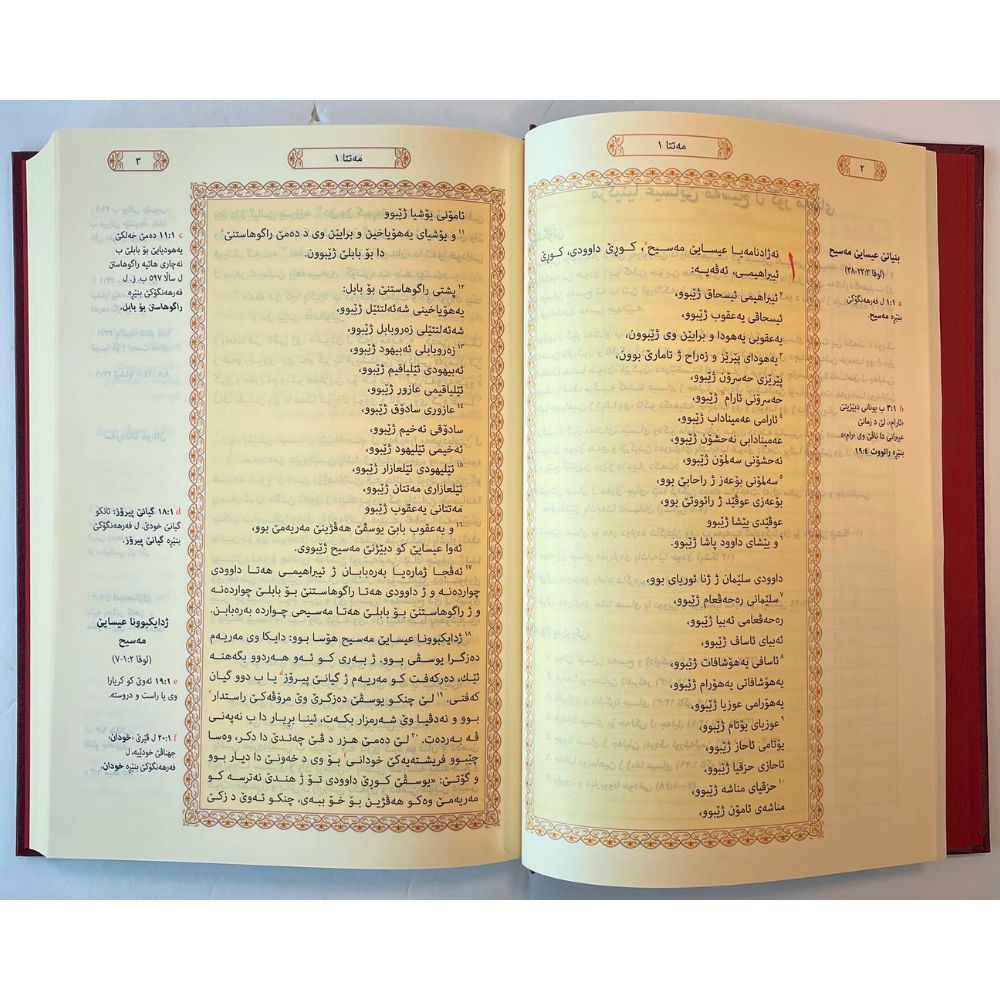 ٢
مەتتا ١
١
نەژادنامەیا عیسایێ مەسیح a، کوڕێ داوودی، کوڕێ
ئیبراهیمی، ئەڤەیە:
٢ ئیبراهیمی ئیسحاق ژێبوو،
ئیسحاقی یەعقوب ژێبوو،
یەعقوبی یەهودا و برایێن وی ژێبوون،
٣ یەهودای پێرێز و زەراح ژ تامارێ بوون،
پێرێزی حەسرۆن ژێبوو،
حەسرۆنی ئارام b ژێبوو،
٤ ئارامی عەمیناداب ژێبوو،
عەمینادابی نەحشۆن ژێبوو،
نەحشۆنی سەلمۆن ژێبوو،
٥ سەلمۆنی بۆعەز ژ راحابێ بوو،
بۆعەزی عوڤێد ژ رائووتێ بوو،
عوڤێدی یێشا ژێبوو
٦ و یێشای داوود پاشا ژێبوو.
داوودی سلێمان ژ ژنا ئوریای بوو،
٧ سلێمانی رەحەڤعام ژێبوو،
رەحەڤعامی ئەبیا ژێبوو،
ئەبیای ئاساف ژێبوو،
٨ ئاسافی یەهۆشافات ژێبوو،
یەهۆشافاتی یەهۆرام ژێبوو،
یەهۆرامی عوزیا ژێبوو،
٩ عوزیای یۆتام ژێبوو،
یۆتامی ئاحاز ژێبوو،
ئاحازی حزقیا ژێبوو،
١٠ حزقیای مناشە ژێبوو،
مناشەی ئامۆن ژێبوو،
بنیاتێ عیسایێ مەسیح
(لوقا ٢٣:٣-٣٨)
a ١:١ ل فەرهەنگۆکێ
بنێڕە مەسیح.
b ٣:١ ب یونانی دبێژیتێ
«ئارام»، لێ د زمانێ
عیبرانی دا ناڤێ وی «رام»ە.
بنێڕە رائووت ١٩:٤
مەتتا ١
٣
ئامۆنی یۆشیا ژێبوو
١١ و یۆشیای یەهۆیاخین و برایێن وی د دەمێ راگوهاستنێ c
دا بۆ بابلێ ژێبوون.
١٢ پشتی راگوهاستنێ بۆ بابل:
یەهۆیاخینی شەئەلتئێل ژێبوو،
شەئەلتئێلی زەروبابل ژێبوو،
١٣ زەروبابلی ئەبیهود ژێبوو،
ئەبیهودی ئێلیاقیم ژێبوو،
ئێلیاقیمی عازور ژێبوو،
١٤ عازوری سادۆق ژێبوو،
سادۆقی ئەخیم ژێبوو،
ئەخیمی ئێلیهود ژێبوو،
١٥ ئێلیهودی ئێلعازار ژێبوو،
ئێلعازاری مەتتان ژێبوو،
مەتتانی یەعقوب ژێبوو
١٦ و یەعقوب بابێ یوسڤێ هەڤژینێ مەریەمێ بوو،
ئەوا عیسایێ کو دبێژنێ مەسیح ژێبووی.
١٧ ئەڤجا ژمارەیا بەرەبابان ژ ئیبراهیمی هەتا داوودی
چواردەنە و ژ داوودی هەتا راگوهاستنێ بۆ بابلێ چواردەنە
و ژ راگوهاستنێ بۆ بابلێ هەتا مەسیحی چواردە بەرەبابن.
١٨ ژدایکبوونا عیسایێ مەسیح هۆسا بوو: دایکا وی مەریەم
دەزگرا یوسڤی بوو. ژ بەری کو ئەو هەردوو بگەهنە
ئێک، دەرکەفت کو مەریەم ژ گیانێ پیرۆز d یا ب دوو گیان
کەفتی. ١٩ چنکو یوسڤێ دەزگرێ وێ مرۆڤەکێ راستدار e
بوو و نەدڤیا وێ شەرمزار بکەت، ئینا بڕیار دا ب نەپەنی
ڤە بەردەت. ٢٠ لێ دەمێ هزر د ڤێ چەندێ دا دکر، وەسا
چێبوو فریشتەیەکێ خودانی f بۆ وی د خەونێ دا دیار بوو
و گۆتێ: «یوسڤێ کوڕێ داوودی تۆ ژ هندێ نەترسە کو
مەریەمێ وەکو هەڤژین بۆ خۆ ببەی، چنکو ئەوێ د زکێ
c ١١:١ دەمێ خەلکێ
یەهودیایێ بۆ بابلێ ب
نەچاری هاتیە راگوهاستن
ل سالا ٥٩٧ ب. ز. ل
فەرهەنگۆکێ بنێڕە
راگوهاستن بۆ بابل.
d ١٨:١ گیانێ پیرۆز: ئانکو
گیانێ خودێ. ل فەرهەنگۆکێ
بنێڕە گیانێ پیرۆز.
ژدایکبوونا عیسایێ
مەسیح
(لوقا ١:٢-٧)
e ١٩:١ ئەوێ کو کریارا
وی یا راست و دروستە.
f ٢٠:١ ل ڤێرێ، خودان،
جهناڤێ خودێیە، ل
فەرهەنگۆکێ بنێڕە خودان.